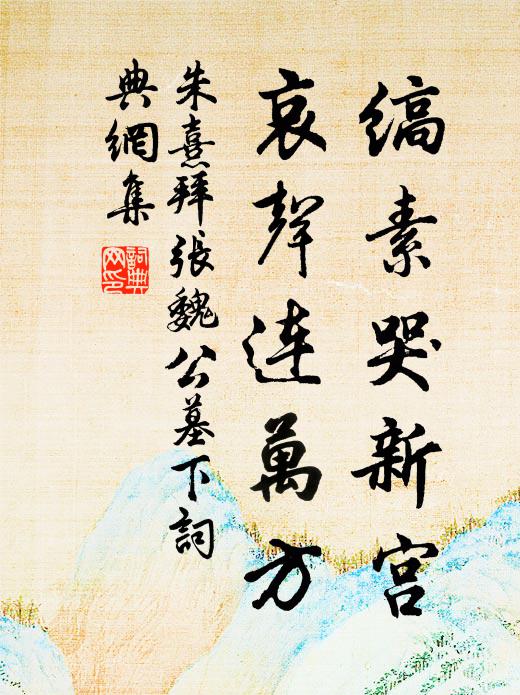 缟素哭新宫
哀聲连萬方
朱熹拜張魏公墓下詞
典網集
詞典
网印